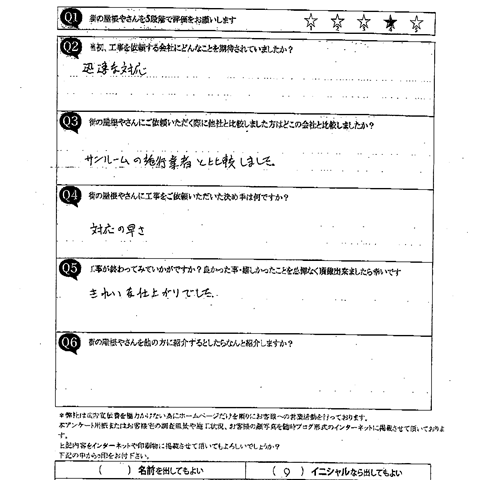 Q1 街の屋根やさんを5段階で評価をお願いします ☆ ☆ ☆ ★ ☆
Q2 当初、工事を依頼する会社にどんなことを期待されていましたか?
迅速な対応
Q3 街の屋根やさんにご依頼いただく際に他社と比較しました方はどこの会社と比較しましたか?
サンルームの施術業者と比較しました。
Q4 街の屋根やさんに工事をご依頼いただいた決め手は何ですか?
対応の早さ
Q5 工事が終わってみていかがですか?良かった事・嬉しかったことを忌憚なく頂戴出来ましたら幸いです
きれいな仕上がりでした
Q6 街の屋根やさんを他の方に紹介するとしたらなんと紹介しますか?
*弊社は広告宣伝費を極力かけない為にホームページだけを頼りにお客様への営業活動を行っております。
本アンケート用紙またはお客様宅の調査風景や施工状況、お客様の顔写真を随時ブログ形式のインターネットに掲載させて頂いております。
上記内容をインターネットや印刷物に掲載させて頂いてもよろしいでしょうか?
下記の中から○印をお付け下さい。
( ) 名前を出してもよい ( ○ ) イニシャルなら出してもよい